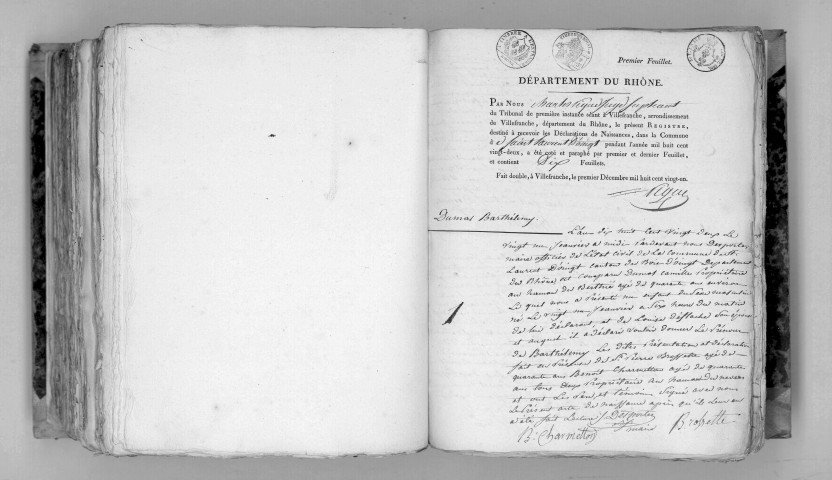 Premier Feuillet.
DÉPARTEMENT DU RHÔNE.
PAR NOUS Charles juge suppléant
du Tribunal de première instance séant à Villefranche, arrondissement
de Villefranche, département du Rhône, le présent REGISTRE,
destiné à recevoir les Déclarations de Naissances, dans la Commune
d Saint Laurent d'oingt pendant l'année mil huit cent
vingt-deux, a été coté et paraphé par premier et dernier Feuillet,
et contient Six Feuillets.
Fait double, à Villefranche, le premier Décembre mil huit cent vingt-un.
Dumas Barthélemy.
L'an dix huit cent vingt deux Le
vingt un Janvier a midi Pardevant nous Desportes
maire officier de l'état civil de La Commune de St
Laurent D'oingt canton du Bois D'oingt Departement
du Rhône est comparu Dumas Propriétaire
au hameau de agé de quarante ans environ
Le quel nous a Présenté un enfant du Sexe masculin
né Le vingt un Janvier a Six heures du matin
de lui déclarant, et de Louise Son épouse
et auquel il a déclaré vouloir donner Le Prénom
de Barthélemy Les dites Présentation et déclaration
fait en Présence de Sr. Pierre Brossette agé de
quarante ans Benoit Charmetton agé de quarante
ans tous deux Propriétaire au hameau de
et ont Les Père et témoin Signé avec nous
Le Présent acte de naissance après qu'il Leur en
a été fait Lecture / Desportes
B. Charmetton maire Brossette
1